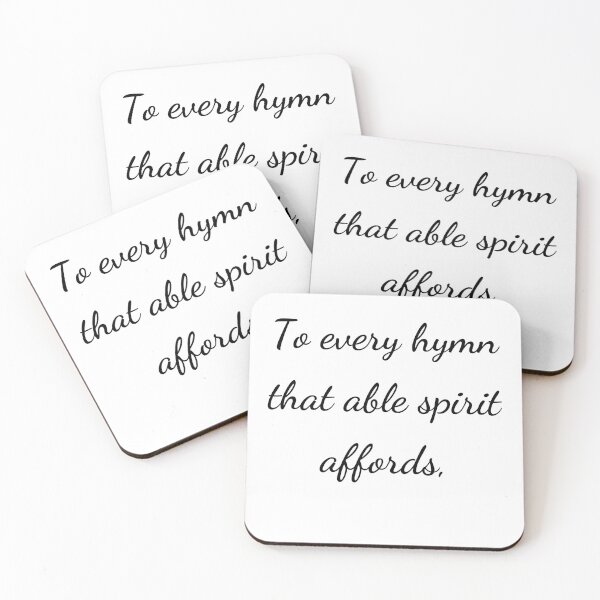 To every hymn
that able
To every hymn
that able spirit
affords
To every hymn
that able spirit
affords
To every hymn
that able spirit
affords,